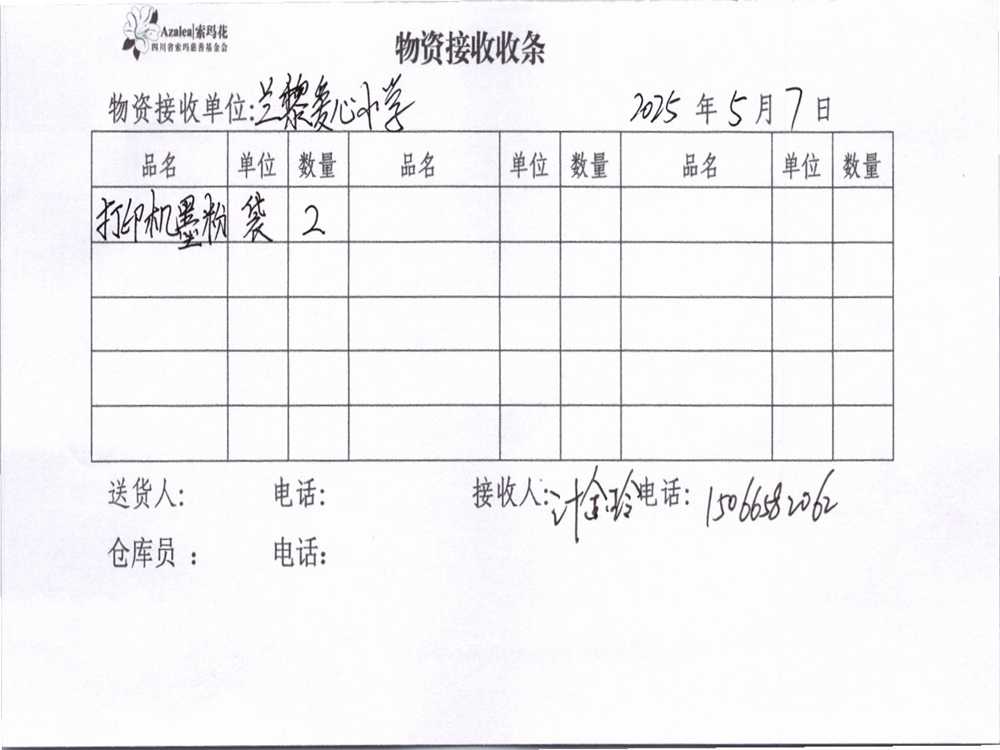 Azalea|索玛花
四川省索玛慈善基金会
物资接收收条
物资接收单位:兰黎爱心小学 2025 年 5 月 7 日
品名 单位 数量 品名 单位 数量 品名 单位 数量
打印机墨粉 袋 2
送货人: 电话: 接收人: 计金玲 电话: 15066582062
仓库员 : 电话: